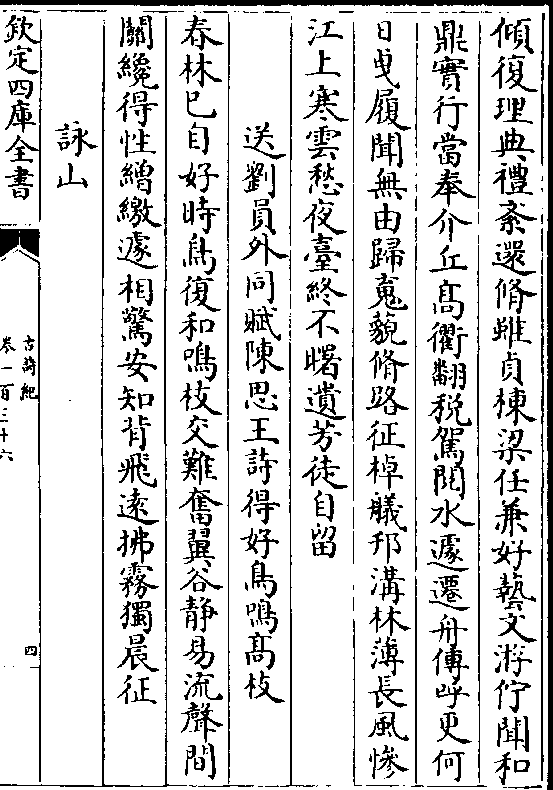 傾復理典禮紊還脩雖貞棟梁任兼好藝文游佇聞和
鼎實行當奉介丘高衢翻税駕閲水遽遷舟傳呼更何
日曵履聞無由歸䰟藐脩路征棹艤邗溝林薄長風慘
江上寒雲愁夜臺終不曙遺芳徒自留
送劉員外同賦陳思王詩得好鳥鳴髙枝
春林已自好時鳥復和鳴枝交難奮翼谷静易流聲間
關纔得性矰繳遽相驚安知背飛逺拂霧獨晨征
詠山
欽定四庫全書
古詩紀
卷一百三十六
四